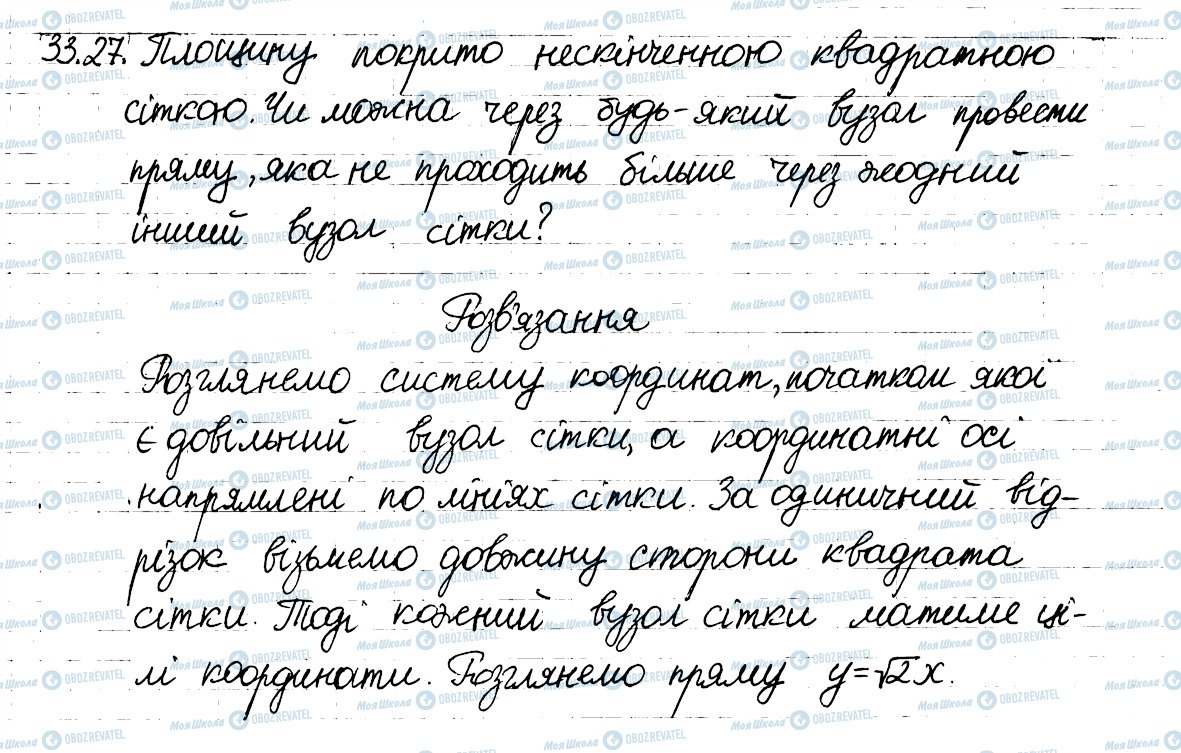 33.27. Площину покрито нескінченною квадратною
сіткою. Чи можна через будь-який вузол провести
пряму, яка не проходить більше через жодний
інший вузол сітки?
Розв'язання
Розглянемо систему координат, початком якої
є довільний вузол сітки, а координатні осі
напрямлені по лініях сітки. За одиничний від-
різок візьмемо довжину сторони квадрата
сітки. Тоді кожний вузол сітки матиме ці-
лі координати. Розглянемо пряму y=√2x.